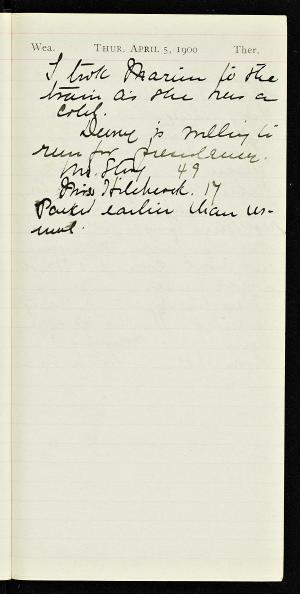 Wea. THUR. APRIL 5, 1900 Ther.
I took Marion to the
train as she has a
cold.
Dewey is willing to
run for presidency.
Mr. 49
Miss Hitchcock. 17
earlier than us-
ual.